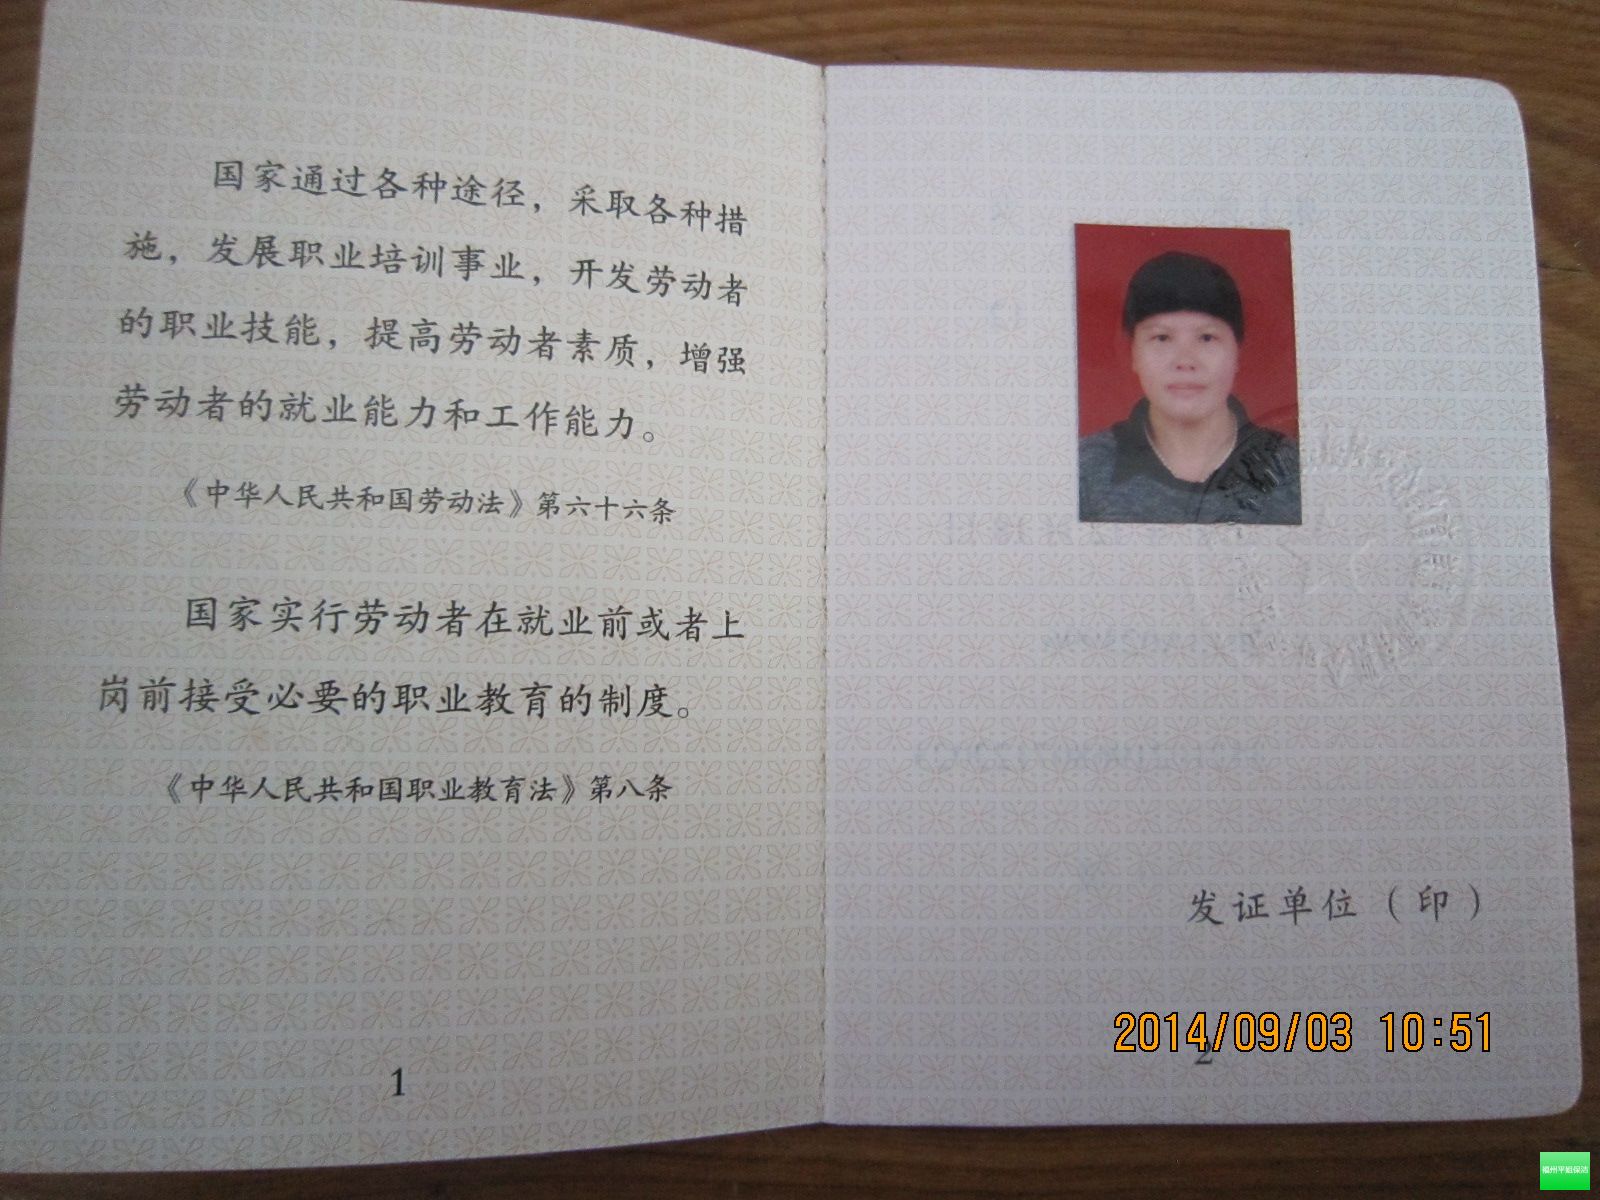 国家通过各种途径，采取各种措
施，发展职业培训事业，开发劳动者
的职业技能，提高劳动者素质，增强
劳动者的就业能力和工作能力。
《中华人民共和国劳动法》第六十六条
国家实行劳动者在就业前或者上
岗前接受必要的职业教育的制度。
《中华人民共和国职业教育法》第八条
1
发证单位（印）
2014/09/03 10:51
2
福州平姐保洁